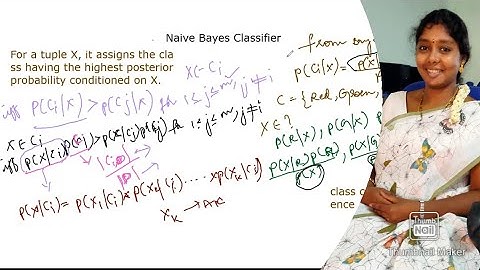 Naive Bayes Classifier
For a tuple X, it assigns the cla
ss having the highest posterior
probability conditioned on X.
X ∈ Ci
iff P(Ci|X) > P(Cj|X) for 1≤j≤m, j≠i
X ∈ Ci
iff P(X|Ci)P(Ci) > P(X|Cj)P(Cj) for 1≤j≤m j≠i
P(X|Ci) = P(X1|Ci) × P(X2|Ci) ..... × P(Xk|Ci)
Xk →
from
P(Ci|X) =
C = {Red, Green,
X ∈ ?
P(R|X), P(G|X) P
P(X|R) P(R), P(X|G
P(X)
class c
ence
Thumb
Nail
Thumbnail Maker